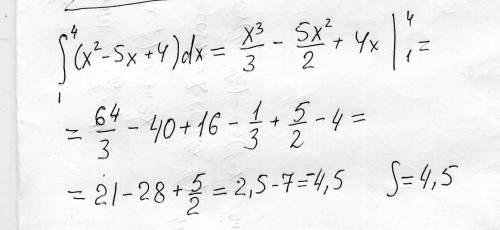 ∫₁⁴ (x² - 5x + 4) dx = x³/3 - 5x²/2 + 4x |₁⁴ =
= 64/3 - 40 + 16 - 1/3 + 5/2 - 4 =
= 21 - 28 + 5/2 = 2,5 - 7 = -4,5 S = 4,5